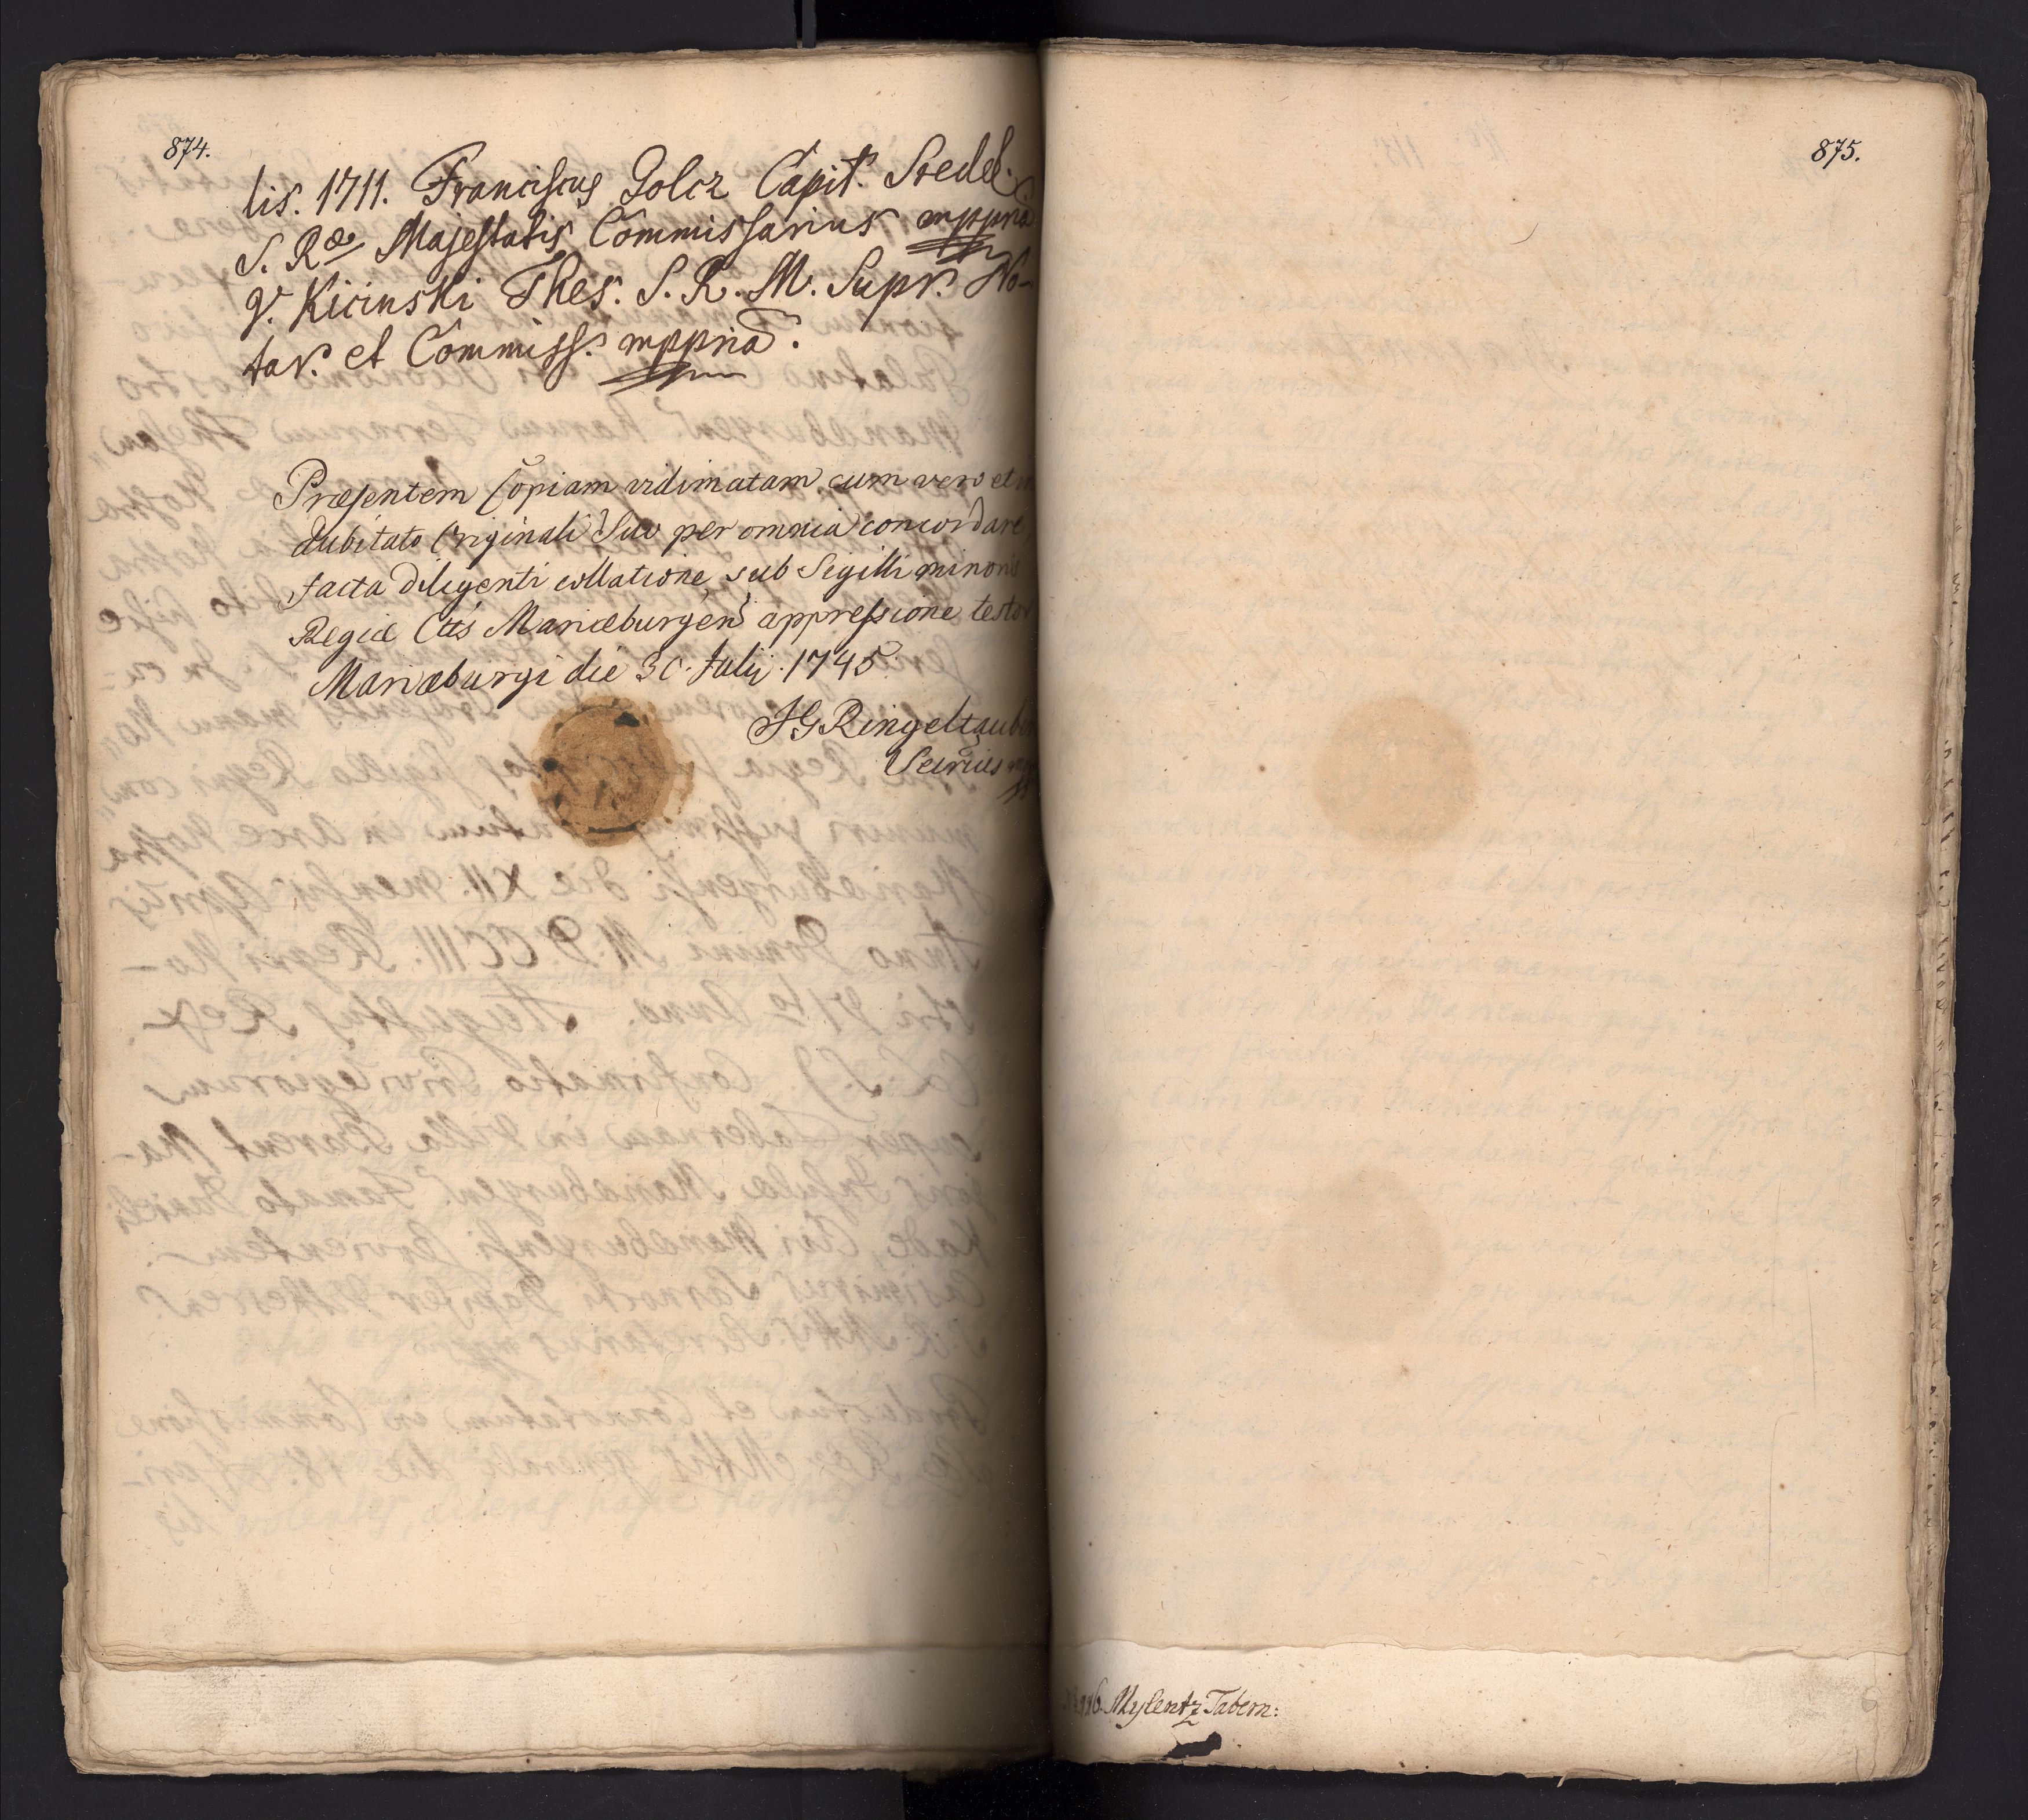 874.
lis. 1711. Franciscus Golcz Capit. Sredel.
S. Ræ Majestatis Commissarius mppria
V. Kicinski Thes. S. R. M. Supr. No-
tar. et Commiss. mppria.
Præsentem Copiam vidimatam cum vero et in
dubitato Originali Suo per omnia concordare
facta diligenti collatione, sub Sigilli minoris
Regiæ Cttis Mariæburgens appressione testor
Mariæburgi die 30. Julij. 1745.
JGRingeltaube
Secrius
875.
Mylentz Tabern: